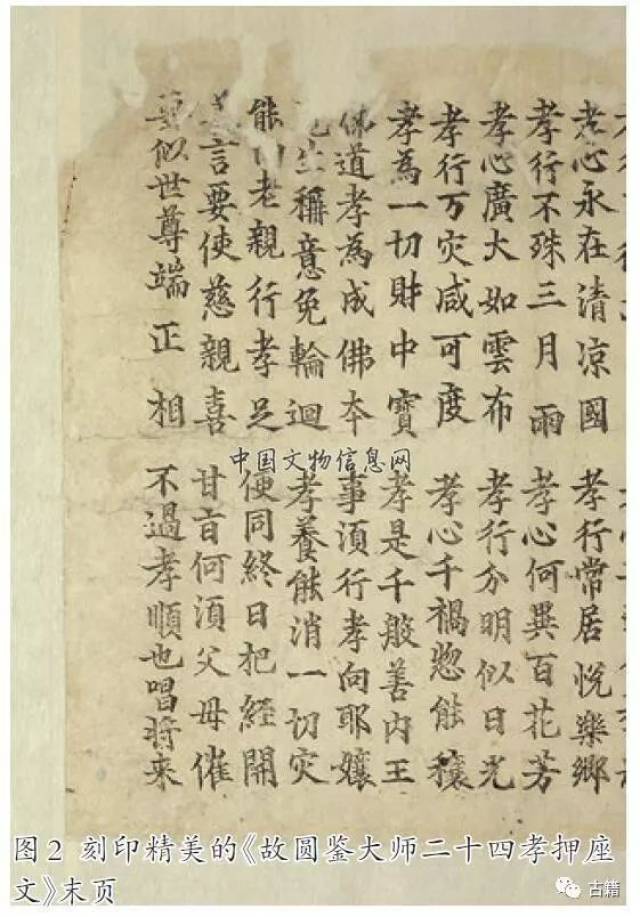 孝心永在清凉國 孝行常居悅樂鄉
孝行不殊三月雨 孝心何異百花芳
孝心廣大如雲布 孝行分明似日光
孝行万灾咸可度 孝心千禍惣能穰
孝為一切財中寶 孝是千般善內王
佛道孝為成佛夲 事湏行孝向耶孃
生稱意免輪迴 孝養能消一切灾
能向老親行孝足 便同終日把經開
言要使慈親喜 甘旨何湏父母催
要似世尊端正相 不過孝順也唱將來
中国文物信息网
图2 刻印精美的《故圆鉴大师二十四孝押座
文》末页
古籍